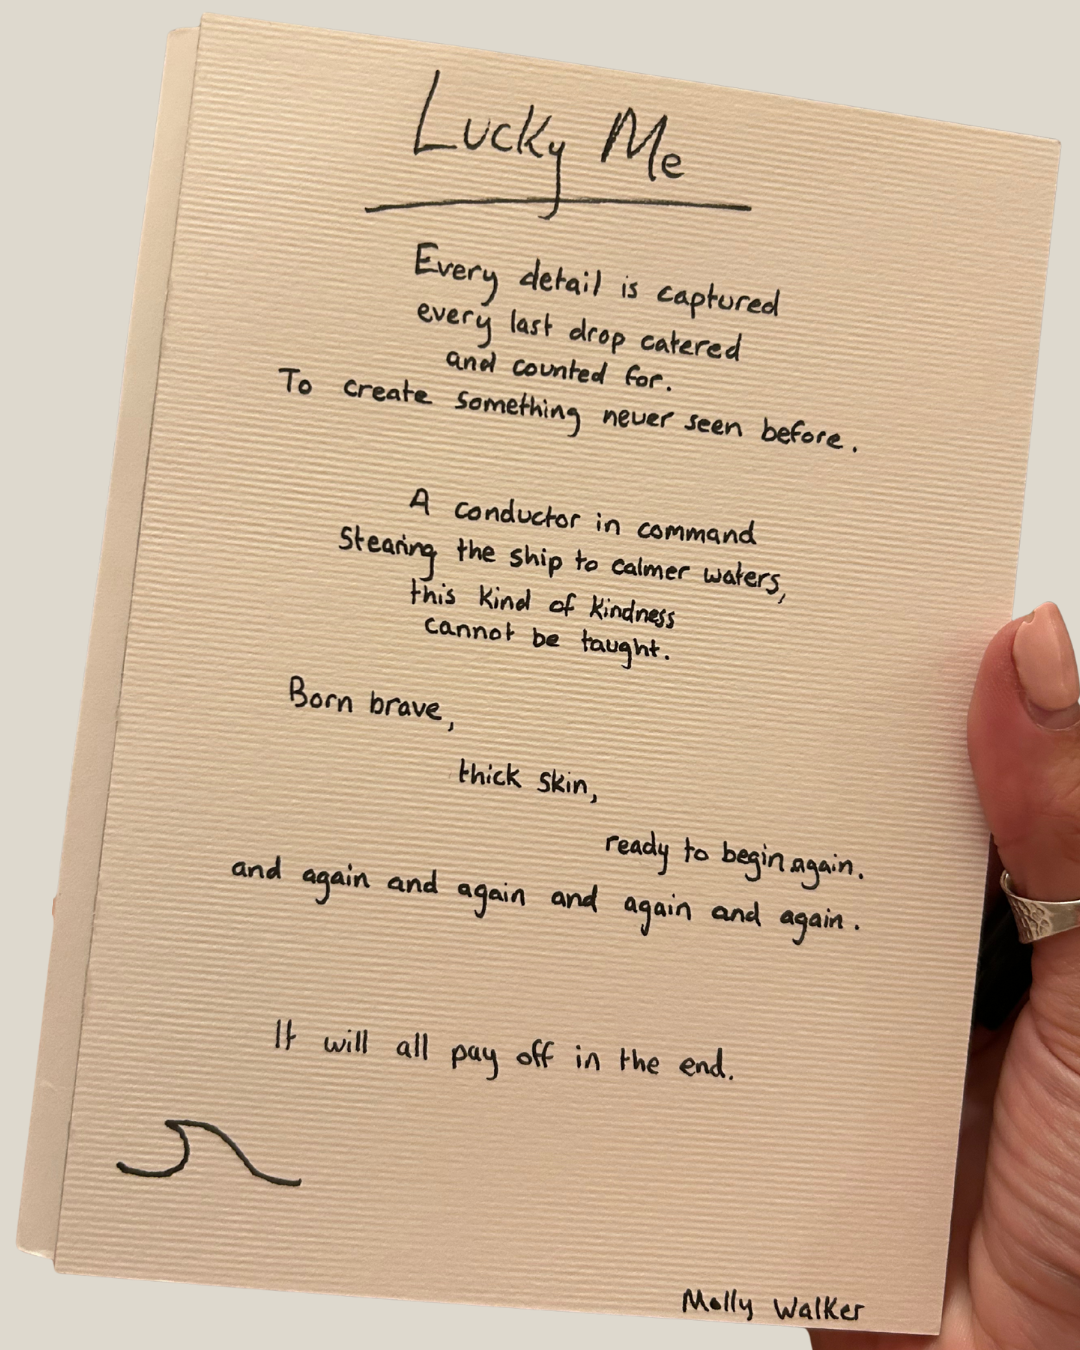 Lucky Me
Every detail is captured
every last drop catered
and counted for.
To create something never seen before.
A conductor in command
Stearing the ship to calmer waters,
this kind of kindness
cannot be taught.
Born brave,
thick skin,
ready to begin again.
and again and again and again and again.
It will all pay off in the end.
Molly Walker